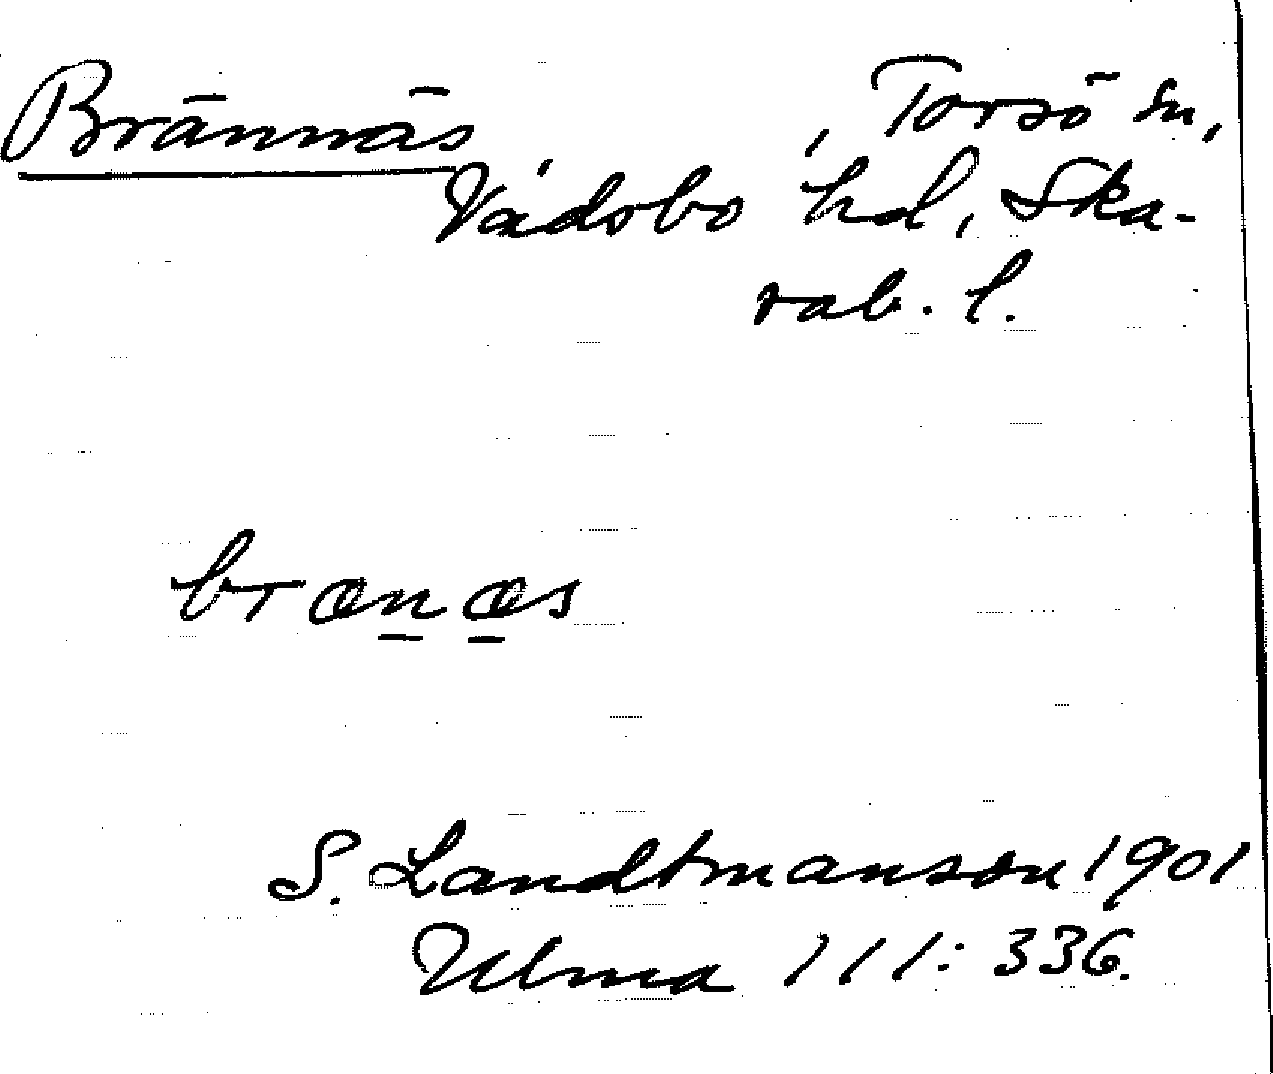 Brännäs, Torsö sn,
Vadsbo hd, Ska-
rab. l.
brænæs
S. Landtmanson 1901
Ulma 111:336.